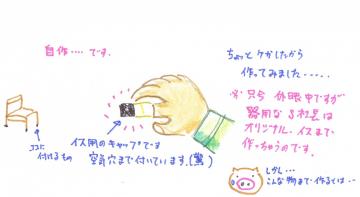 自作‥‥です.
ちょっとケガしたから
作ってみました‥‥‥
※只今 休眠中ですが
器用なS社長は
オリジナル.イスまで
作っちゃうのです.
ココに
付けるもの
イス用のキャップです
空気穴まで付いています.(驚)
しかし…
こんな物まで作るとは…